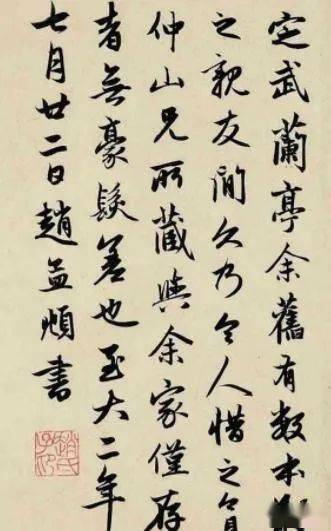 定武蘭亭余舊有數本
之親友間久乃令人惜之
仲山兄所藏與余家僅存
者無豪髮差也至大二年
七月廿二日趙孟頫書
趙氏子昂